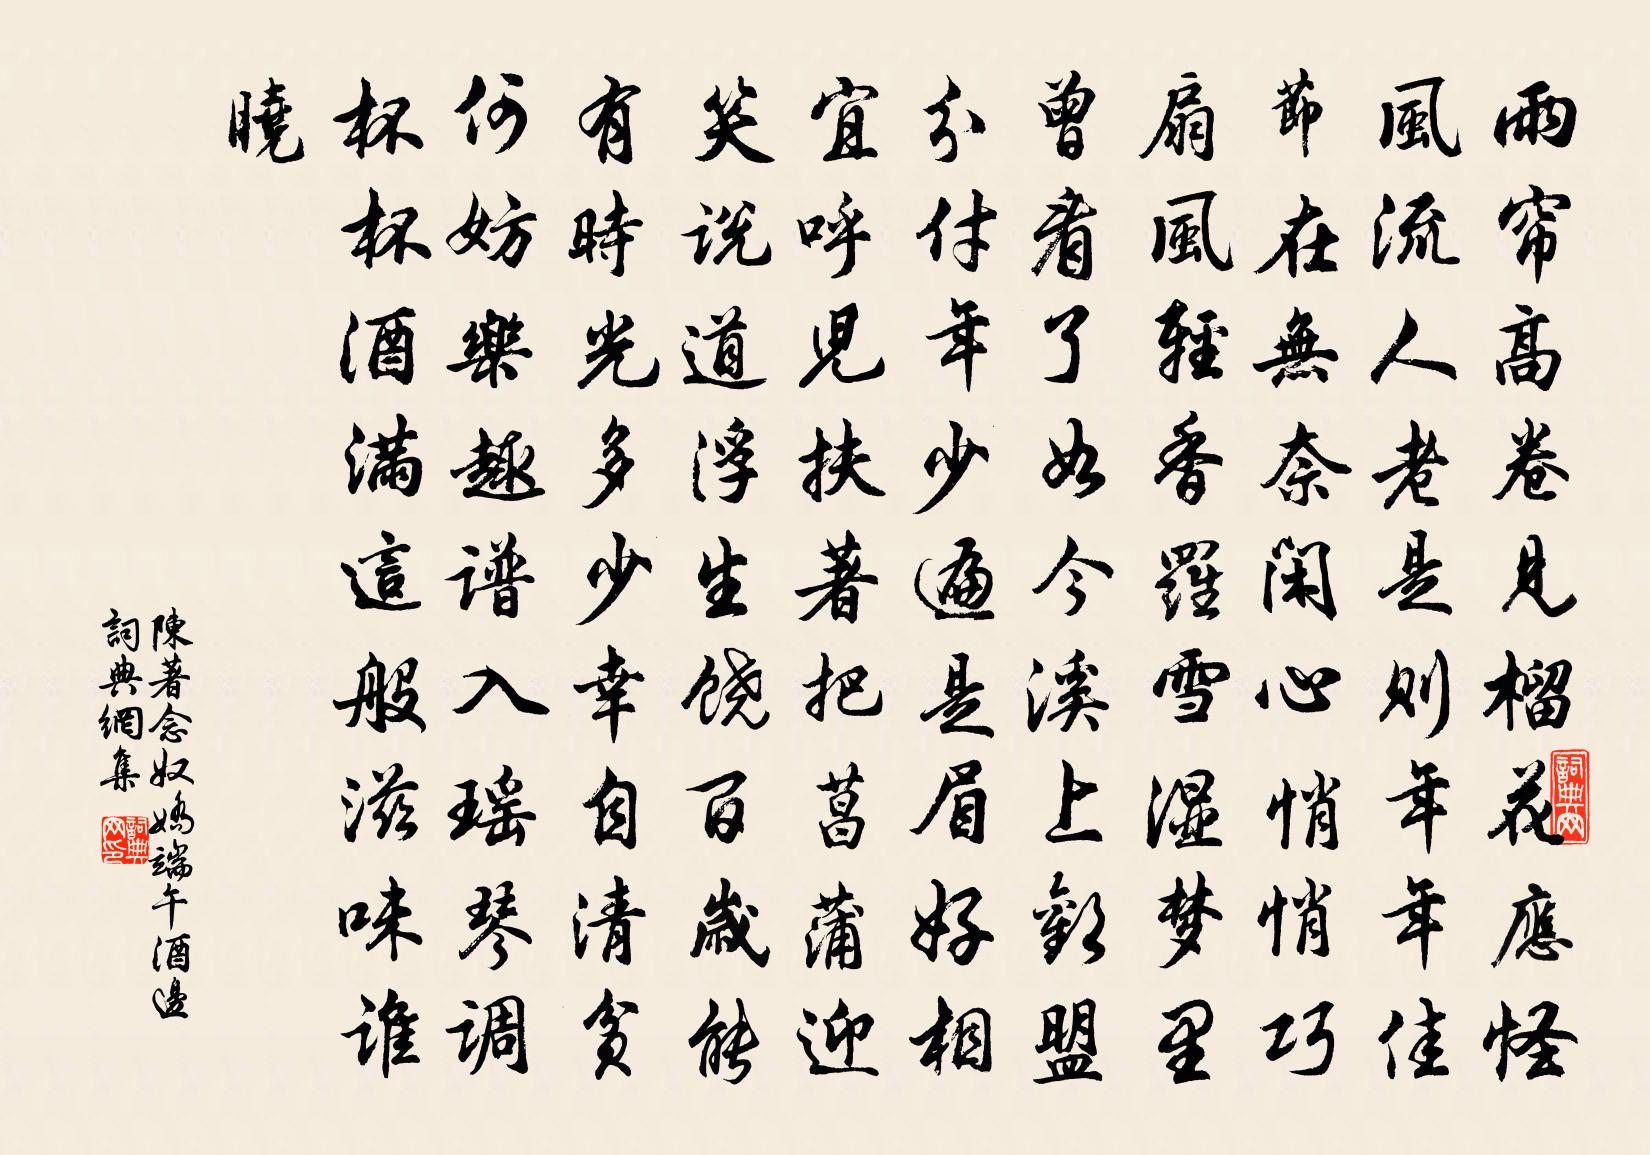 雨帘高卷見榴花應怪
風流人老是则年年佳
節在無奈闲心悄悄巧
扇風輕香羅雪湿梦里
曾看了如今溪上歡盟
分付年少遍是眉好相
宜呼児扶著把菖蒲迎
笑说道浮生饶百歲能
有時光多少幸自清贫
何妨樂趣谱入瑶琴调
杯杯酒满這般滋味谁
曉
陳著念奴嬌端午酒邊
詞典網集
詞典网
詞典网印